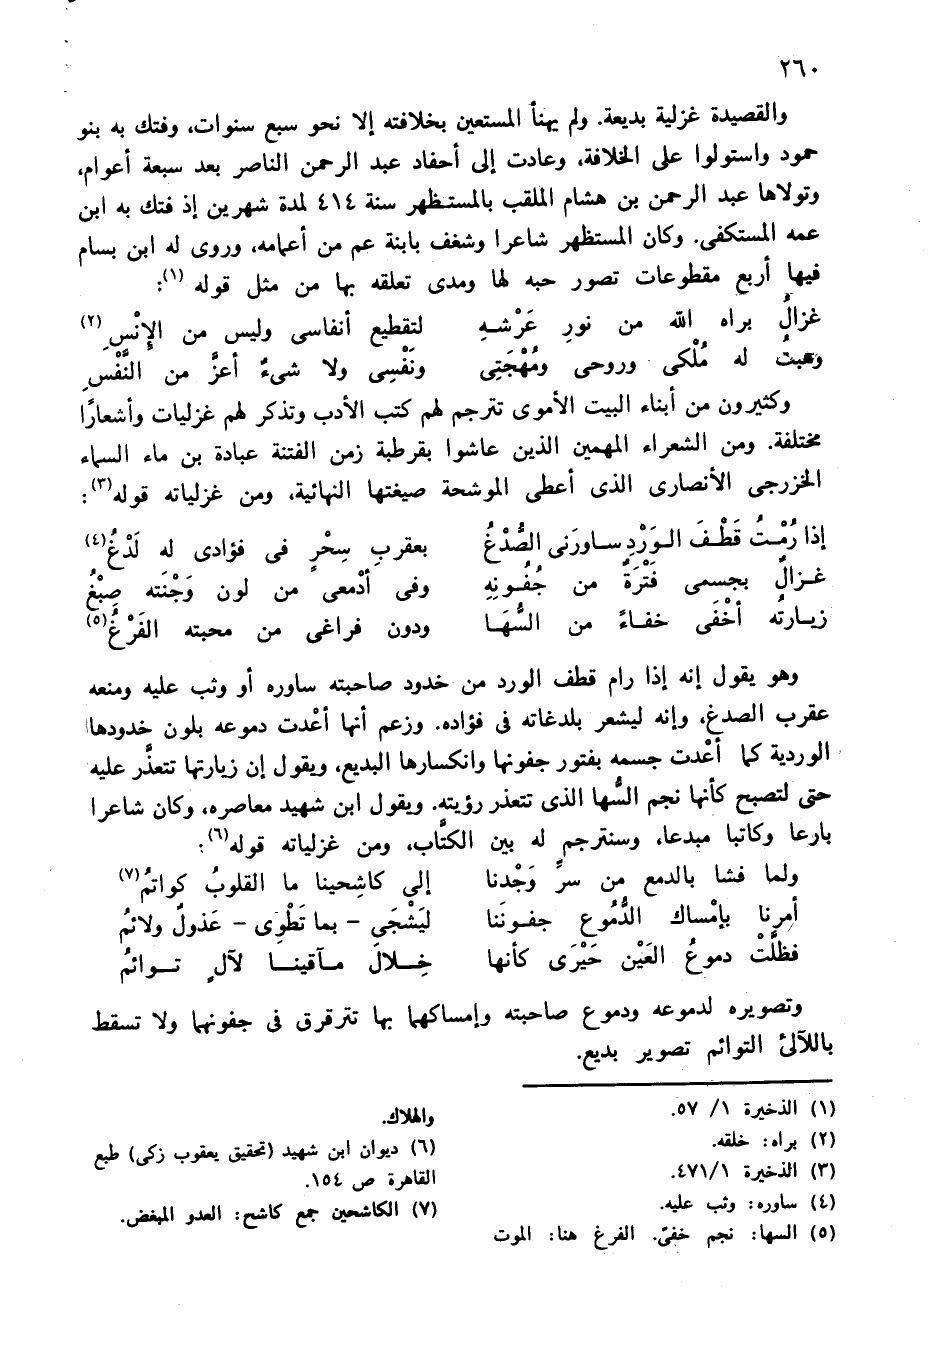 ٢٦٠
والقصيدة غزلية بديعة. ولم يهنأ المستعين بخلافته إلا نحو سبع سنوات، وفتك به بنو
حمود واستولوا على الخلافة، وعادت إلى أحفاد عبد الرحمن الناصر بعد سبعة أعوام،
وتولاها عبد الرحمن بن هشام الملقب بالمستظهر سنة ٤١٤ لمدة شهرين إذ فتك به ابن
عمه المستكفى. وكان المستظهر شاعرا وشغف بابنة عم من أعمامه، وروى له ابن بسام
فيها أربع مقطوعات تصور حبه لها ومدى تعلقه بها من مثل قوله (١):
غزالٌ براه الله من نورِ عَرْشهِ لتقطيع أنفاسى وليس من الإِنْسِ (٢)
وهبتُ له مُلْكى وروحى ومُهْجَتِى ونَفْسِى ولا شىءٌ أعزَّ من النَّفْسِ
وكثيرون من أبناء البيت الأموى تترجم لهم كتب الأدب وتذكر لهم غزليات وأشعارًا
مختلفة. ومن الشعراء المهمين الذين عاشوا بقرطبة زمن الفتنة عبادة بن ماء السماء
الخزرجى الأنصارى الذى أعطى الموشحة صيغتها النهائية، ومن غزلياته قوله(٣):
إذا رُمْتُ قَطْفَ الوَرْدِ ساورَنى الصُّدْغُ بعقربِ سِحْرٍ فى فؤادى له لَدْغُ(٤)
غزالٌ بجسمى فَتْرَةٌ من جُفُونِهِ وفى أدْمعى من لون وَجْنَته صِبْغُ
زيارتُه أخْفَى خفاءً من السُّهَا ودون فراغى من محبته الفَرْغُ(٥)
وهو يقول إنه إذا رام قطف الورد من خدود صاحبته ساوره أو وثب عليه ومنعه
عقرب الصدغ، وإنه ليشعر بلدغاته فى فؤاده. وزعم أنها أعْدت دموعه بلون خدودها
الوردية كما أعْدت جسمه بفتور جفونها وانكسارها البديع، ويقول إن زيارتها تتعذَّر عليه
حتى لتصبح كأنها نجم السُّها الذى تتعذر رؤيته. ويقول ابن شهيد معاصره، وكان شاعرا
بارعا وكاتبا مبدعا، وسنترجم له بين الكتَّاب، ومن غزلياته قوله(٦):
ولما فشا بالدمع من سرِّ وَجْدنا إلى كاشِحينا ما القلوبُ كواتمُ(٧)
أمرنا بإمْساك الدُّمُوع جفونَنا ليَشْجَى - بما تَطْوِى - عَذولٌ ولائمُ
فظلَّتْ دموعُ العَيْن حَيْرَى كأنها خِلالَ مآقينا لآلٍ توائمُ
وتصويره لدموعه ودموع صاحبته وإمساكهما بها تترقرق فى جفونهما ولا تسقط
باللآلئ التوائم تصوير بديع.
(١) الذخيرة ١/ ٥٧.
(٢) براه: خلقه.
(٣) الذخيرة ٤٧١/١.
(٤) ساوره: وثب عليه.
(٥) السها: نجم خفىّ. الفرغ هنا: الموت
والهلاك.
(٦) ديوان ابن شهيد (تحقيق يعقوب زكى) طبع
القاهرة ص ١٥٤.
(٧) الكاشحين جمع كاشح: العدو المبغض.